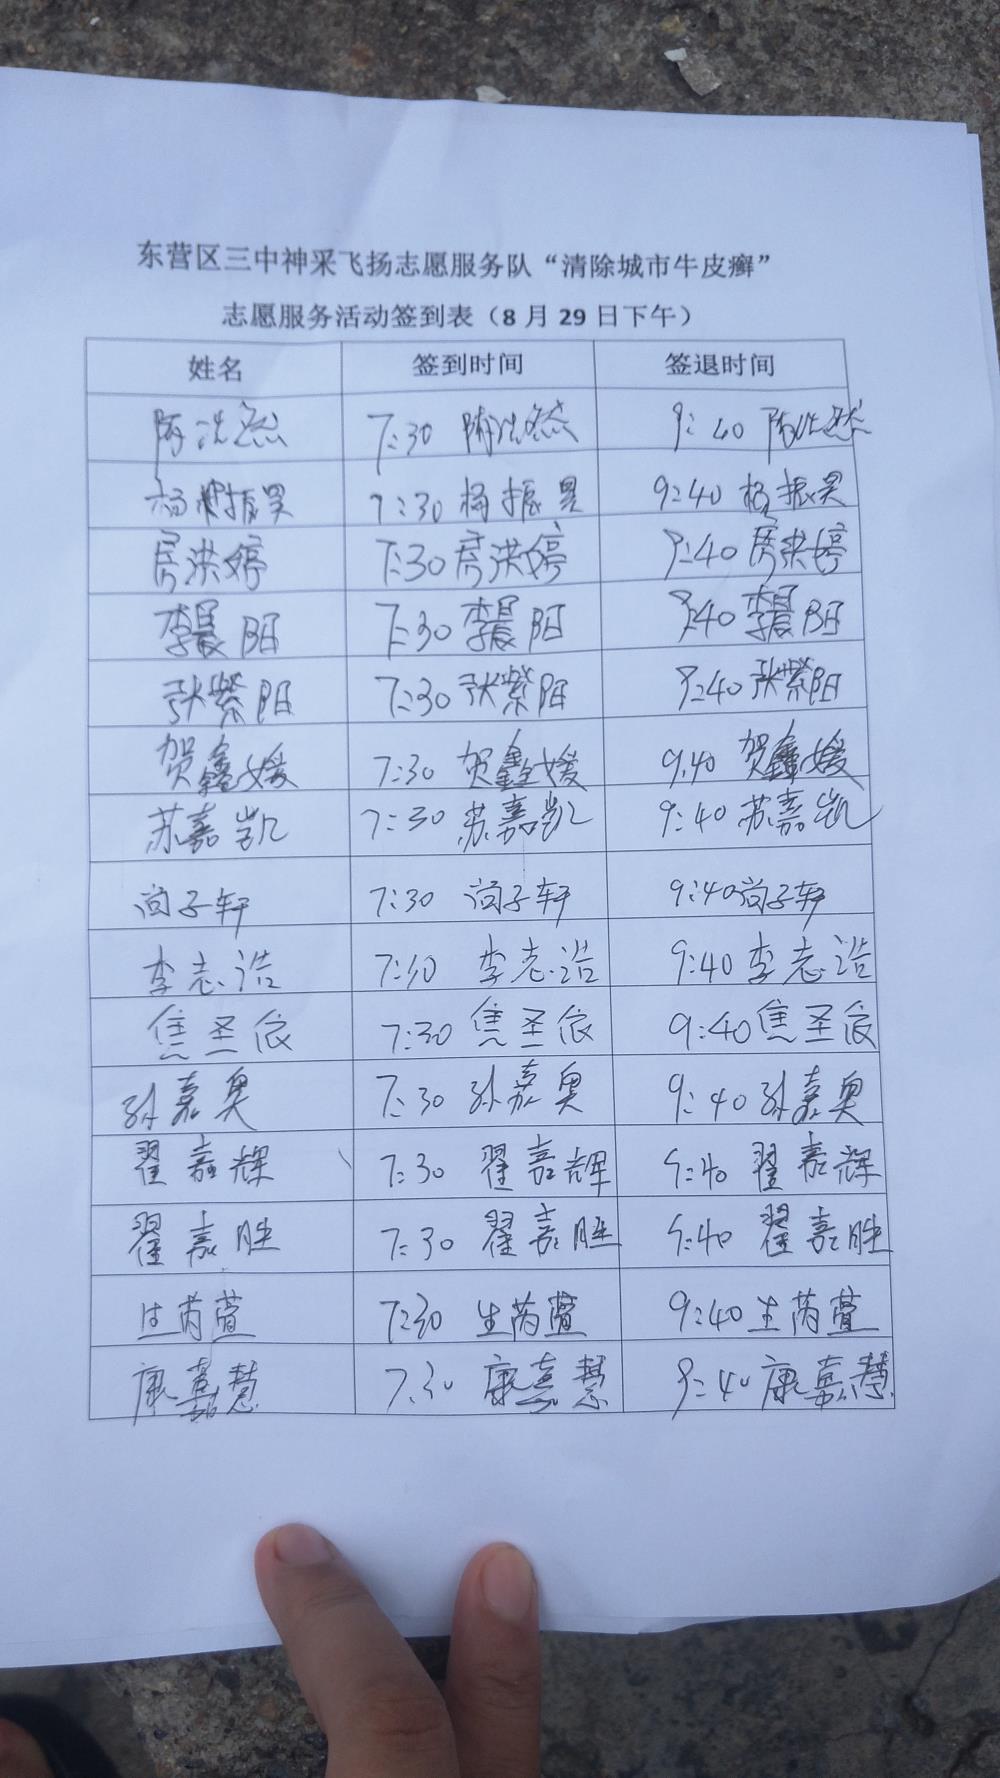 东营区三中神采飞扬志愿服务队“清除城市牛皮癣”
志愿服务活动签到表（8月29日下午）
姓名 签到时间 签退时间
7:30 9:40
杨振昊 7:30 杨振昊 9:40 杨振昊
房洪婷 7:30 房洪婷 9:40 房洪婷
李晨阳 7:30 李晨阳 9:40 李晨阳
张紫阳 7:30 张紫阳 9:40 张紫阳
贺鑫媛 7:30 贺鑫媛 9:40 贺鑫媛
苏嘉凯 7:30 苏嘉凯 9:40 苏嘉凯
尚子轩 7:30 尚子轩 9:40 尚子轩
李志浩 7:30 李志浩 9:40 李志浩
焦圣依 7:30 焦圣依 9:40 焦圣依
孙嘉奥 7:30 孙嘉奥 9:40 孙嘉奥
翟嘉辉 7:30 翟嘉辉 9:40 翟嘉辉
翟嘉胜 7:30 翟嘉胜 9:40 翟嘉胜
生芮萱 7:30 生芮萱 9:40 生芮萱
康嘉慧 7:30 康嘉慧 9:40 康嘉慧